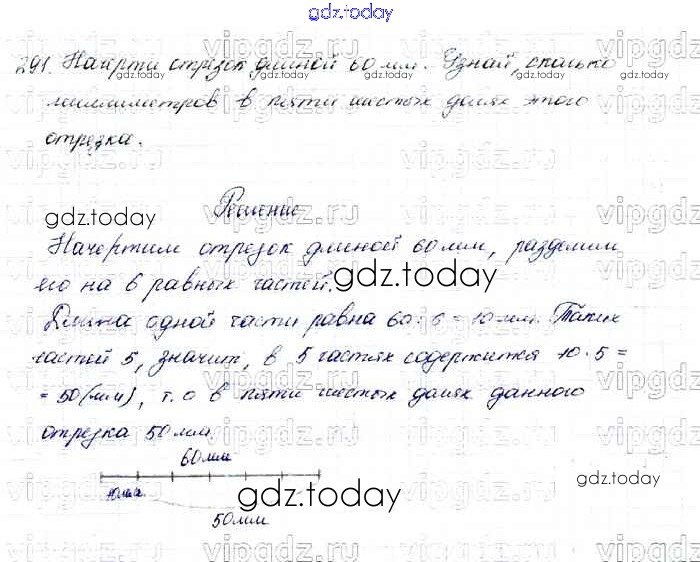 gdz.today
291. Начерти отрезок длиной 60 мм. Узнай, сколько
миллиметров в пяти шестых долях этого
отрезка.
Решение
Начертим отрезок длиной 60 мм, разделим
его на 6 равных частей.
Длина одной части равна 60 : 6 = 10 мм. Таких
частей 5, значит, в 5 частях содержится 10 · 5 =
= 50 (мм), т.о в пяти шестых долях данного
отрезка 50 мм.
60мм
10мм
50мм
gdz.today
gdz.today
gdz.today
gdz.today
gdz.today
vipgdz.ru